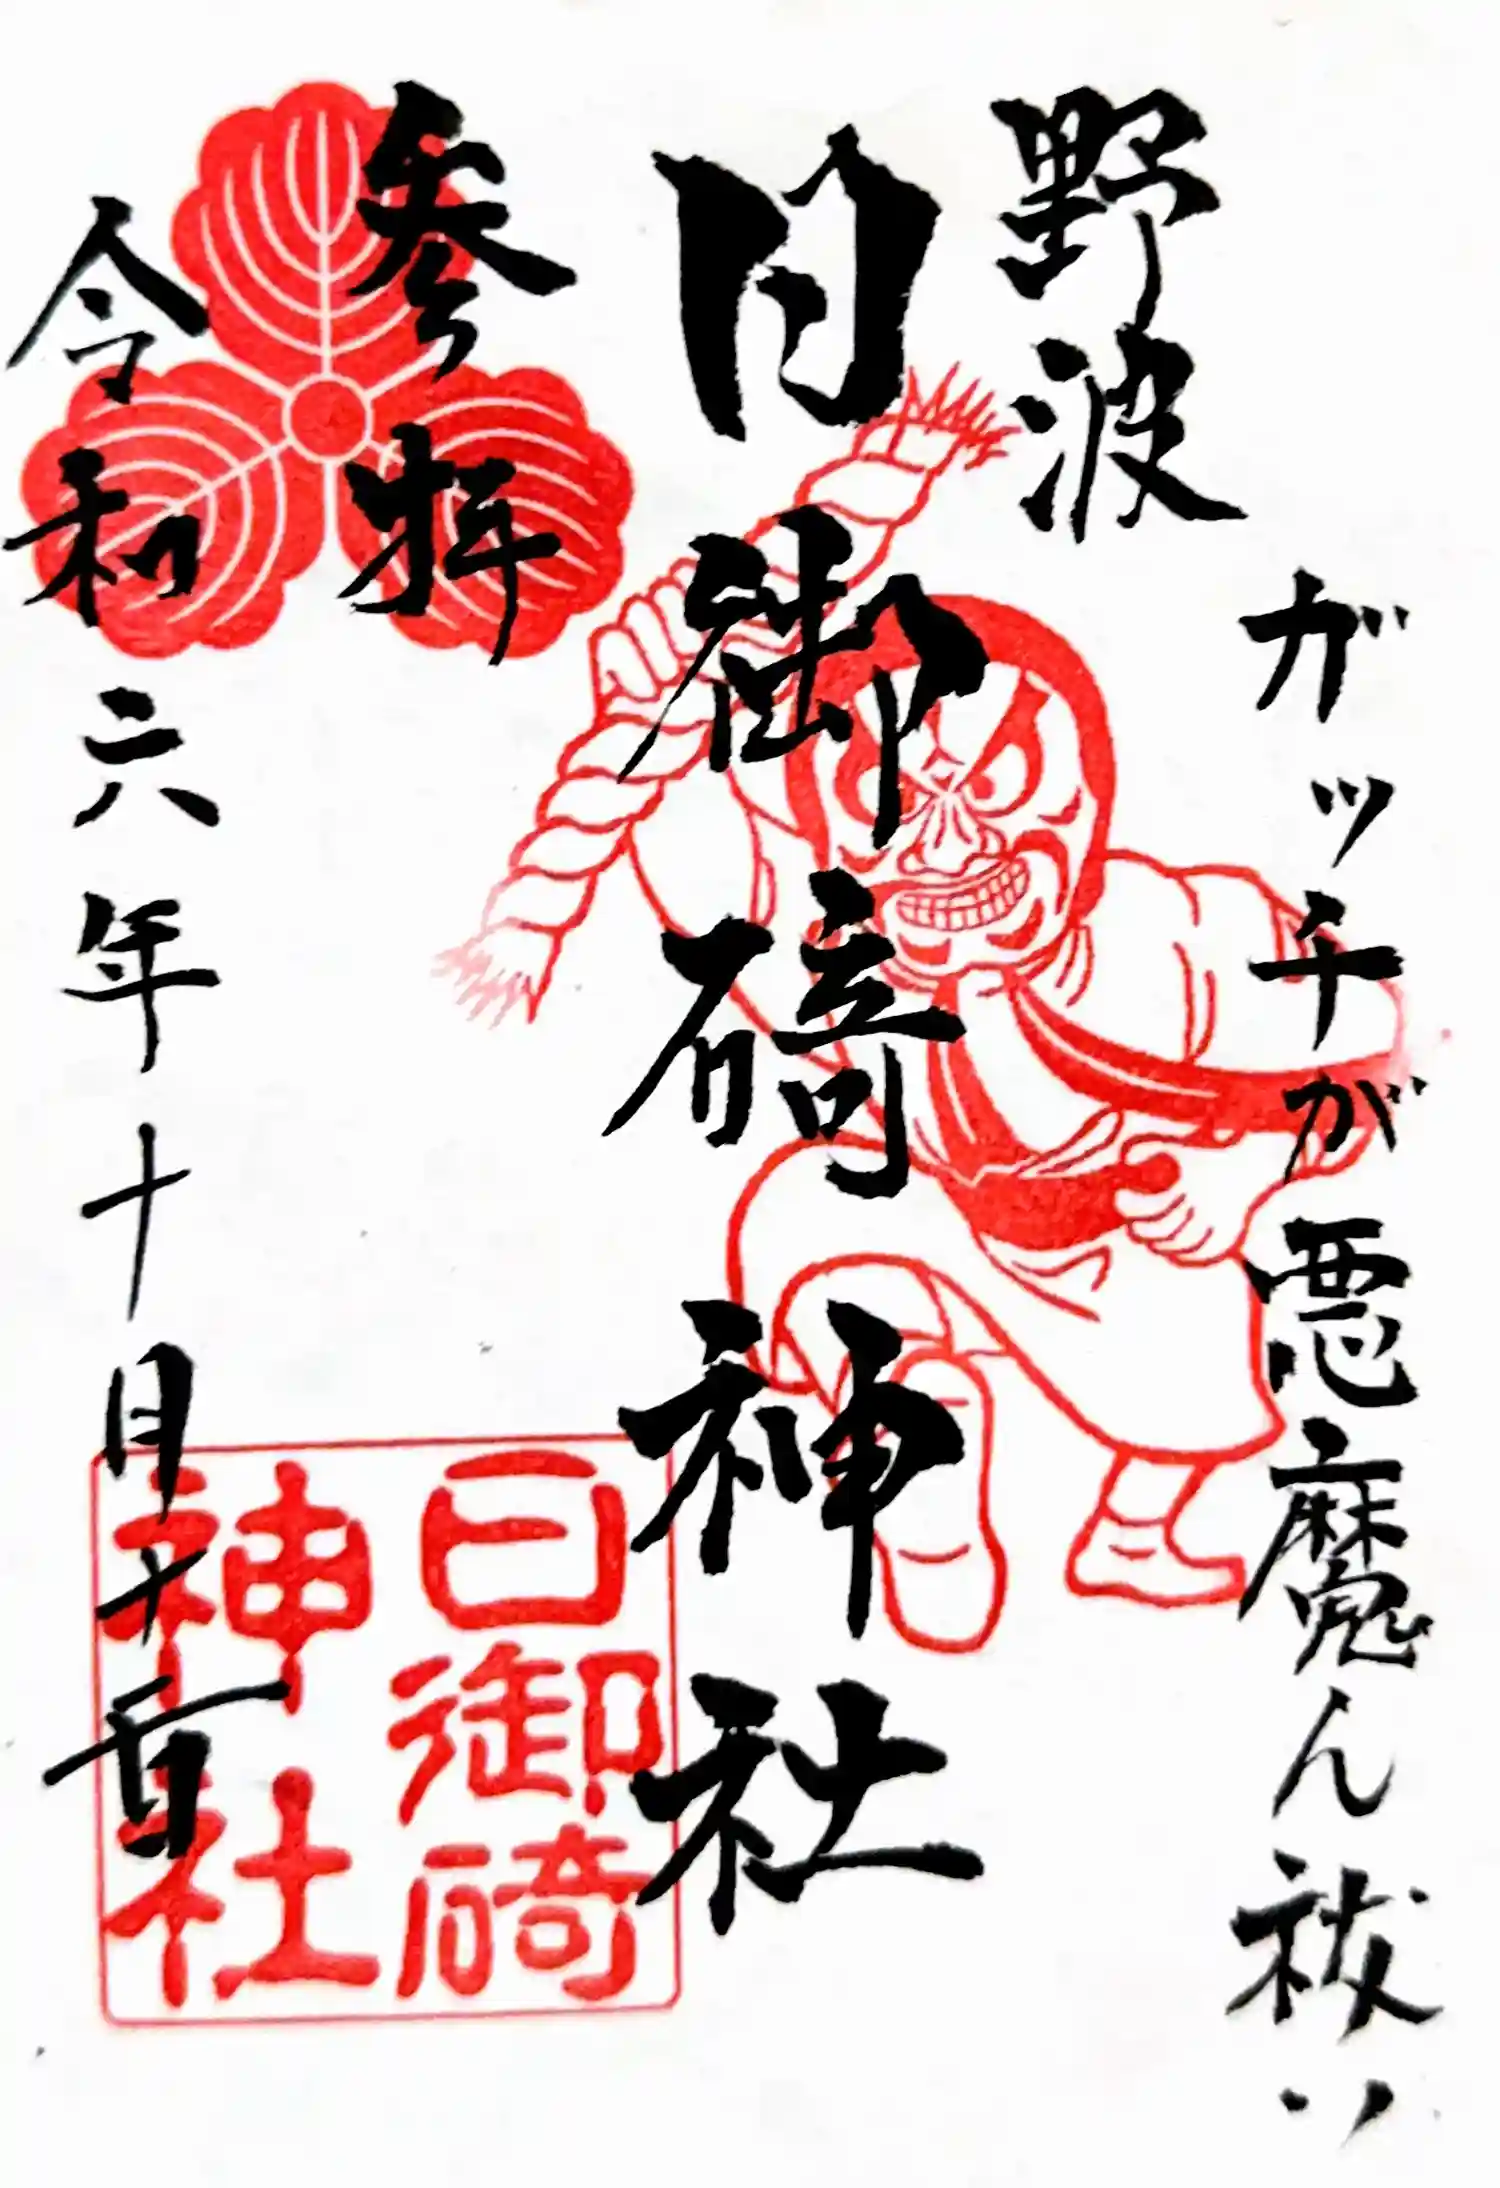 ガッチが悪魔ん祓い
野波
日御碕神社
参拝
令和六年十月十一日
日御碕
神社